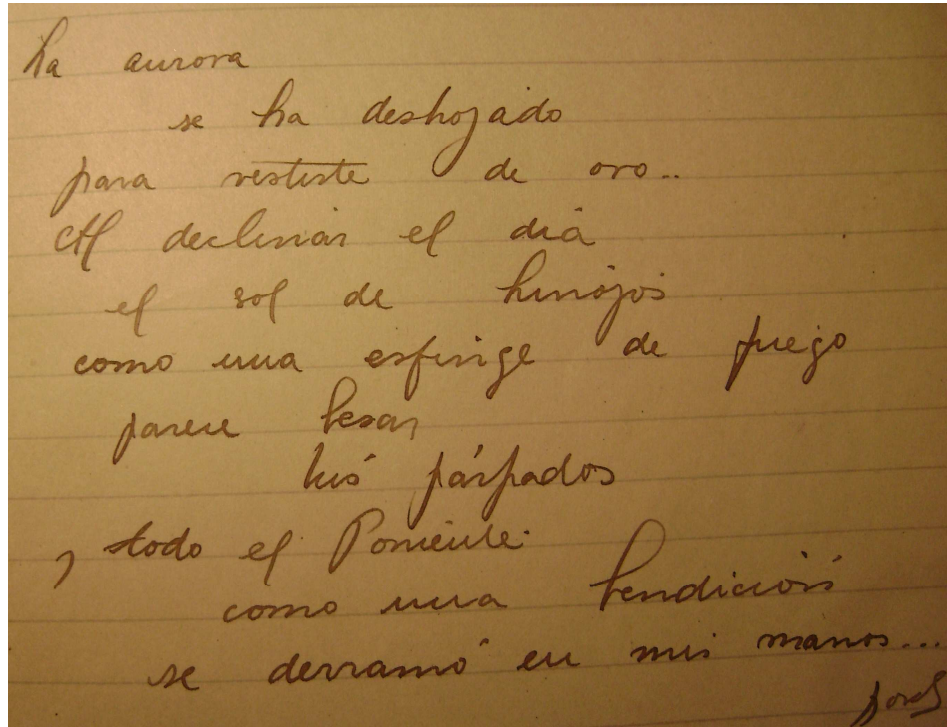 La aurora
se ha deshojado
para vestirte de oro..
Al declinar el día
el sol de hinojos
como una esfinge de fuego
parece besar
tus párpados
y todo el Poniente
como una bendición
se derramó en mis manos...